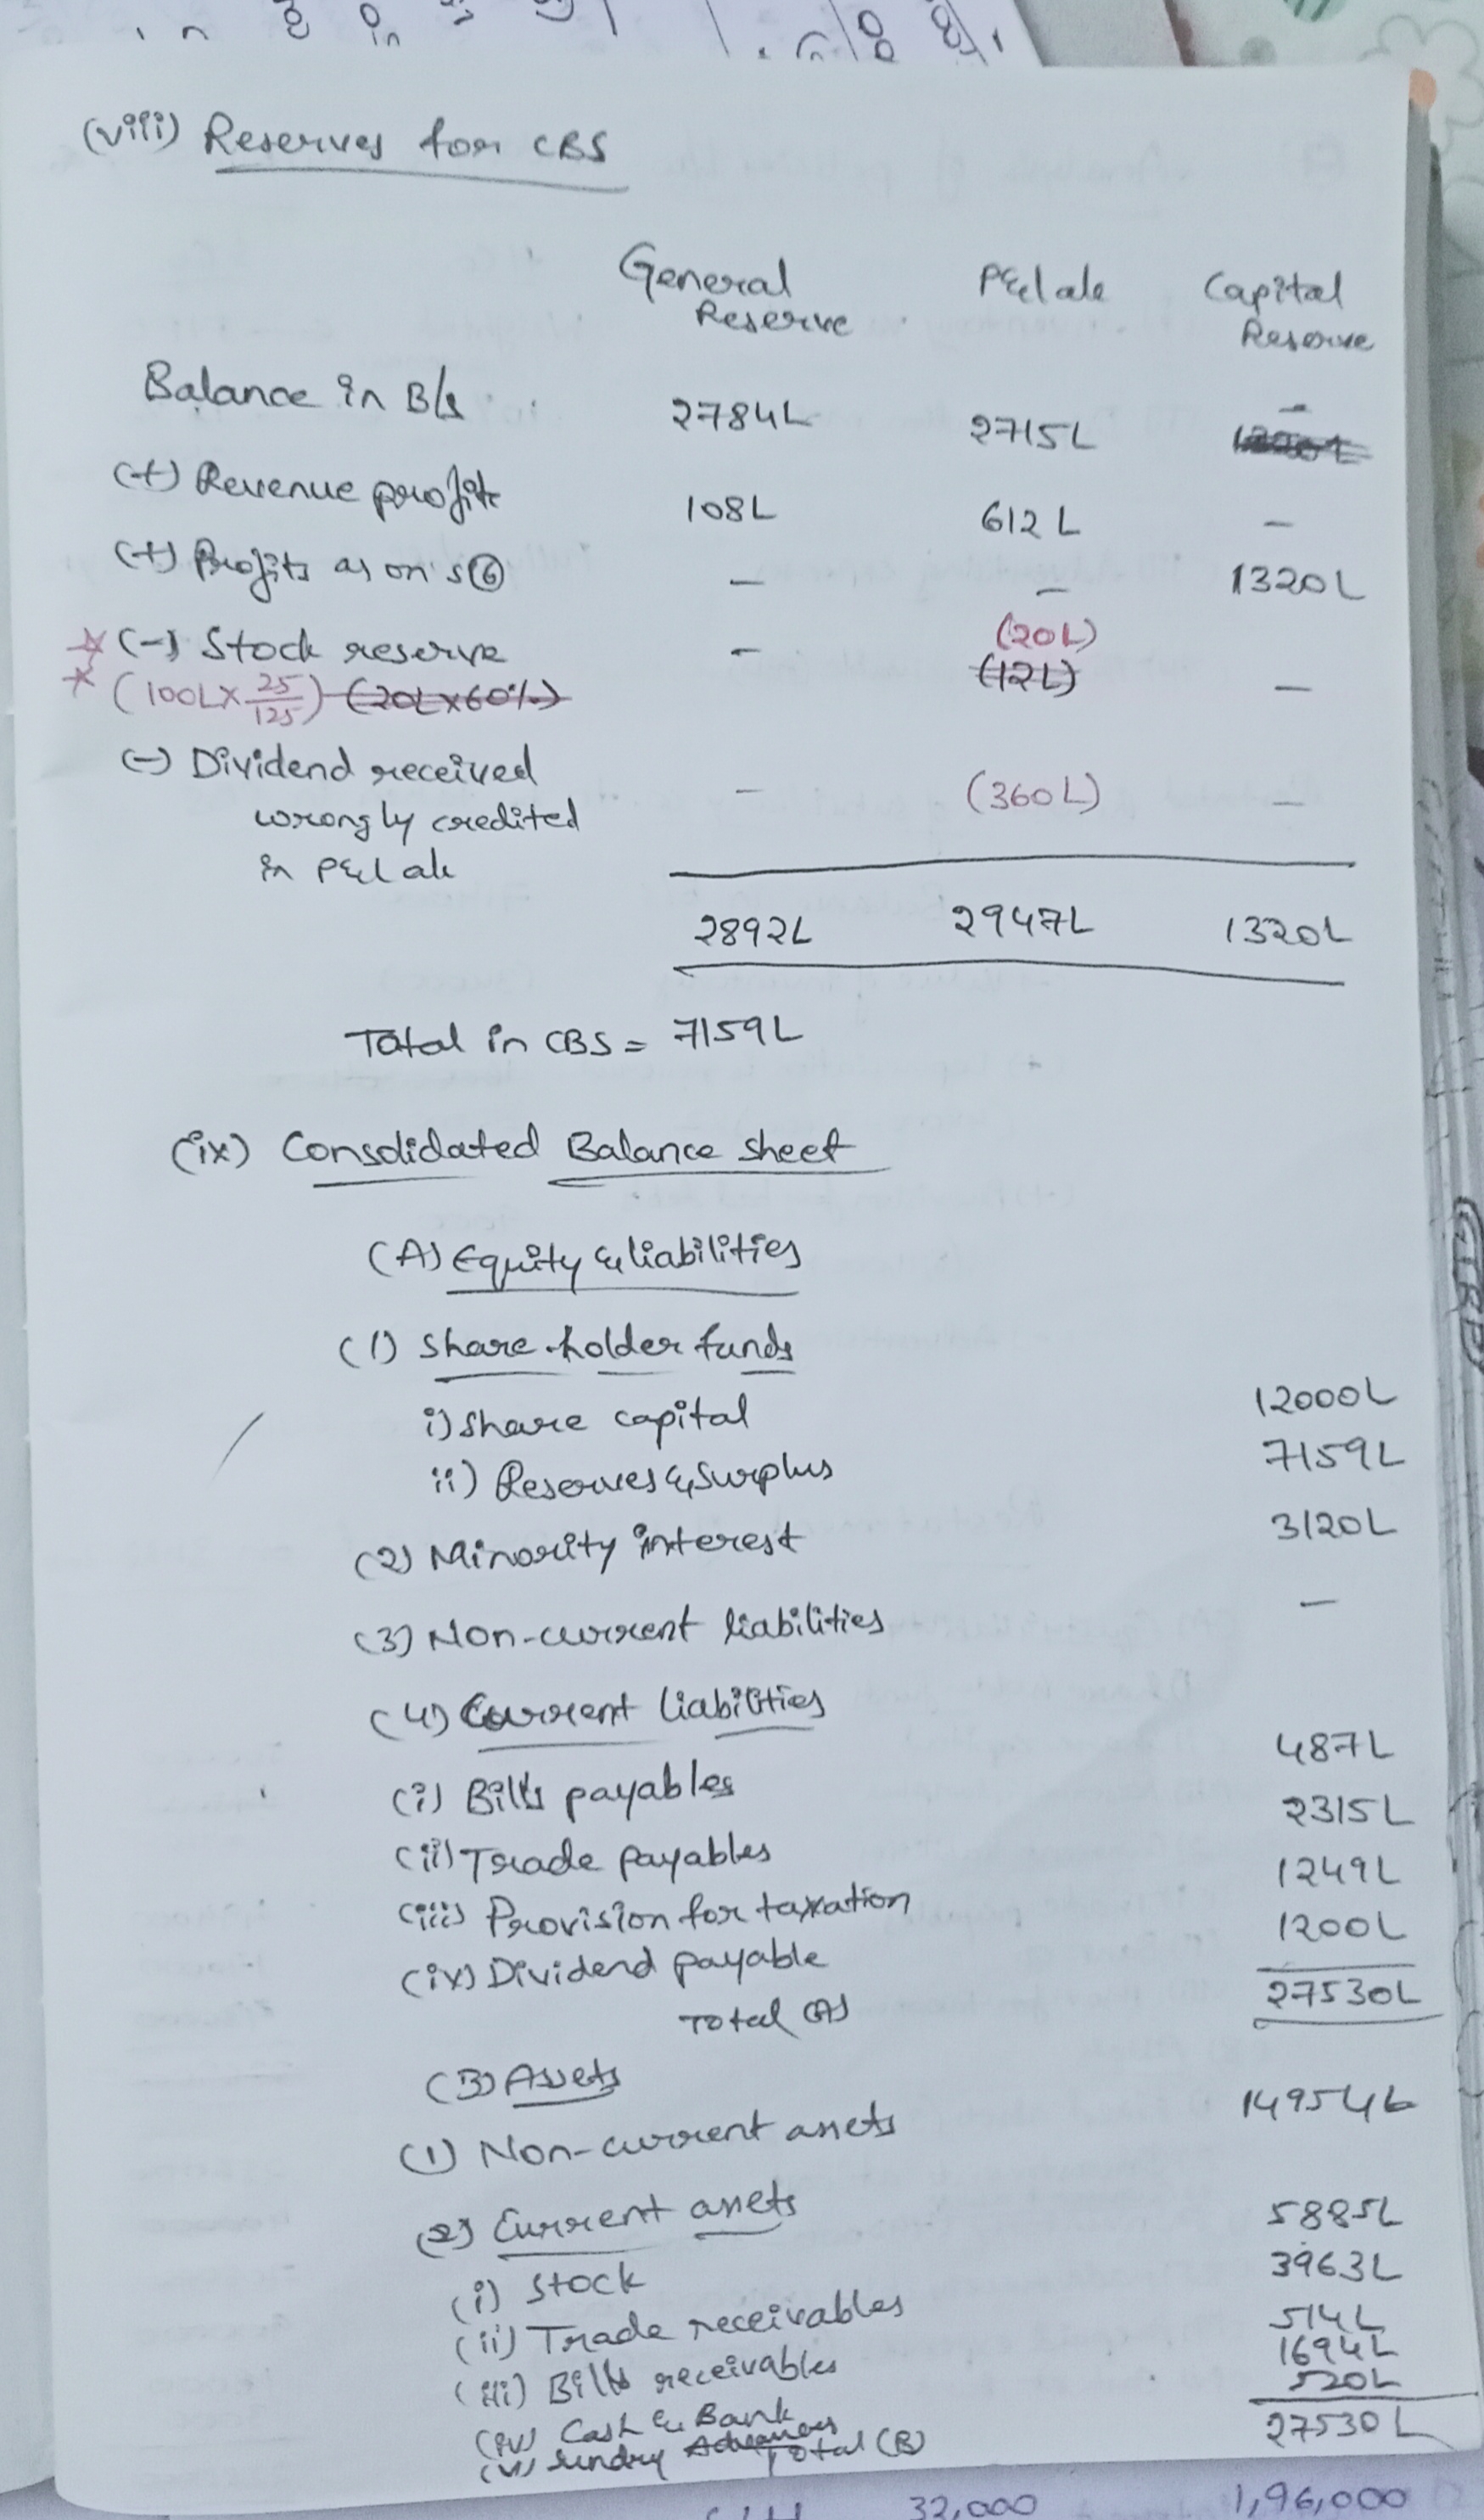 (viii) Reserves for CBS
General Reserve P&L a/c Capital Reserve
Balance in B/s 2784L 2715L -
(+) Revenue profit 108L 612L -
(+) Profits as on's⑥ - - 1320L
(-) Stock reserve - (20L)
(100L x 25/125) (20L x 60%) (12L) -
(-) Dividend received
wrongly credited - (360L) -
in P&L a/c
2892L 2947L 1320L
Total in CBS = 7159L
(ix) Consolidated Balance sheet
(A) Equity & liabilities
(1) Share holder funds
i) Share capital 12000L
ii) Reserves & Surplus 7159L
(2) Minority interest 3120L
(3) Non-current liabilities -
(4) Current liabilities
(i) Bills payables 487L
(ii) Trade payables 2315L
(iii) Provision for taxation 1249L
(iv) Dividend payable 1200L
Total (A) 27530L
(B) Assets
(1) Non-current assets 14954L
(2) Current assets
(i) Stock 5885L
(ii) Trade receivables 3963L
(iii) Bills receivables 514L
(iv) Cash & Bank 1694L
(v) Sundry Advances 520L
Total (B) 27530L
32,000 1,96,000